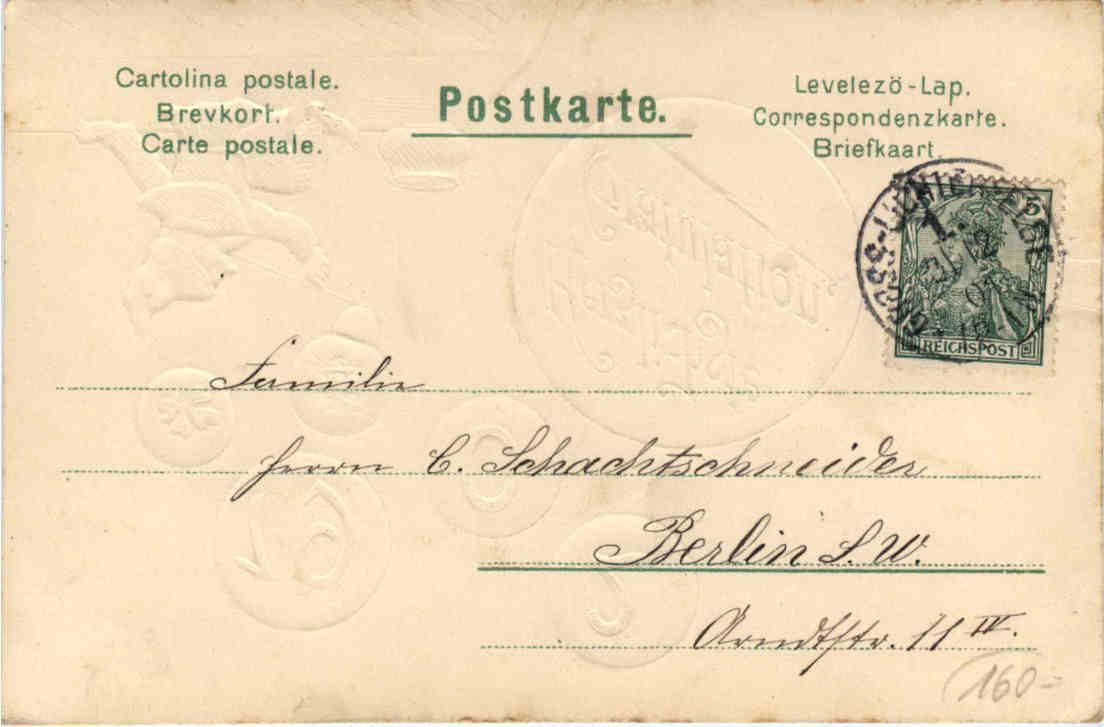 Cartolina postale.
Brevkort.
Carte postale.
Postkarte.
Levelezö-Lap.
Correspondenzkarte.
Briefkaart.
GROSS-LICHTERFELDE
1.
31 12
01
5
REICHSPOST
Familie
Herrn C. Schachtschneider
Berlin S.W.
Arndtstr. 11 IV.
160-